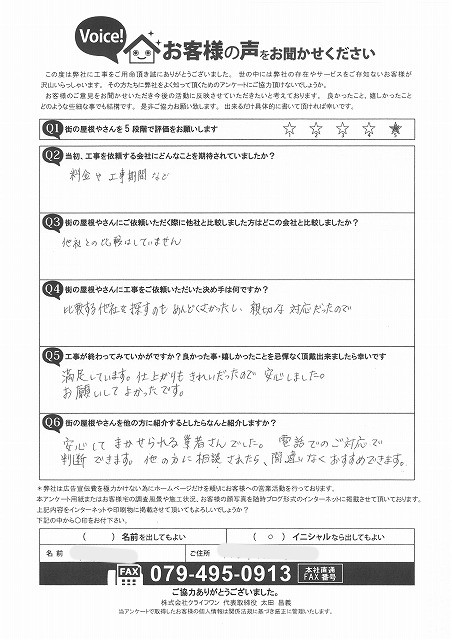 Voice!
お客様の声をお聞かせください
この度は弊社に工事をご用命頂き誠にありがとうございました。 世の中には弊社の存在やサービスをご存知ないお客様が
沢山いらっしゃいます。その方たちに弊社をよく知って頂くためのアンケートにご協力頂けないでしょうか?
お客様のご意見をお聞かせいただき今後の活動に反映させていただきたいと考えております。良かったこと、嬉しかったこと
どのような些細な事でも結構です。是非ご協力お願い致します。出来るだけ具体的に書いて頂ければ幸いです。
Q1 街の屋根やさんを5段階で評価をお願いします
1 2 3 4 5
Q2 当初、工事を依頼する会社にどんなことを期待されていましたか?
料金や工事期間など
Q3 街の屋根やさんにご依頼いただく際に他社と比較しました方はどこの会社と比較しましたか?
他社との比較はしていません
Q4 街の屋根やさんに工事をご依頼いただいた決め手は何ですか?
比較する他社を探すのもめんどくさかったし、親切な対応だったので
Q5 工事が終わってみていかがですか?良かった事・嬉しかったことを忌憚なく頂戴出来ましたら幸いです
満足しています。仕上がりもきれいだったので安心しました。
お願いしてよかったです。
Q6 街の屋根やさんを他の方に紹介するとしたらなんと紹介しますか?
安心してまかせられる業者さんでした。 電話でのご対応で
判断できます。他の方に相談されたら、間違いなくおすすめできます。
＊弊社は広告宣伝費を極力かけない為にホームページだけを頼りにお客様への営業活動を行っております。
本アンケート用紙またはお客様宅の調査風景や施工状況、お客様の顔写真を随時ブログ形式のインターネットに掲載させて頂いております。
上記内容をインターネットや印刷物に掲載させて頂いてもよろしいでしょうか?
下記の中から〇印をお付け下さい。
( )名前を出してもよい
( ○ )イニシャルなら出してもよい
名前
ご住所
FAX 079-495-0913 本社直通
FAX番号
ご協力ありがとうございました。
株式会社クライフワン 代表取締役 太田 昌義
当アンケートで取得したお客様の個人情報は関係法規に基づき厳正に管理いたします。